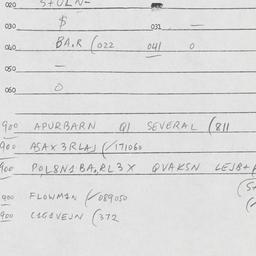 020 S+ULN-
030 $ 031 —
040 BA,R (022 041 0
050 —
060 0
900 APURBARN QI SEVERAL (811
900 ASAX3RLAJ (/171060
900 POL8N1BA,RL3X QVAKSN LEJB+
900 FLOWM1N (/089050
900 C1G1VEJN (372